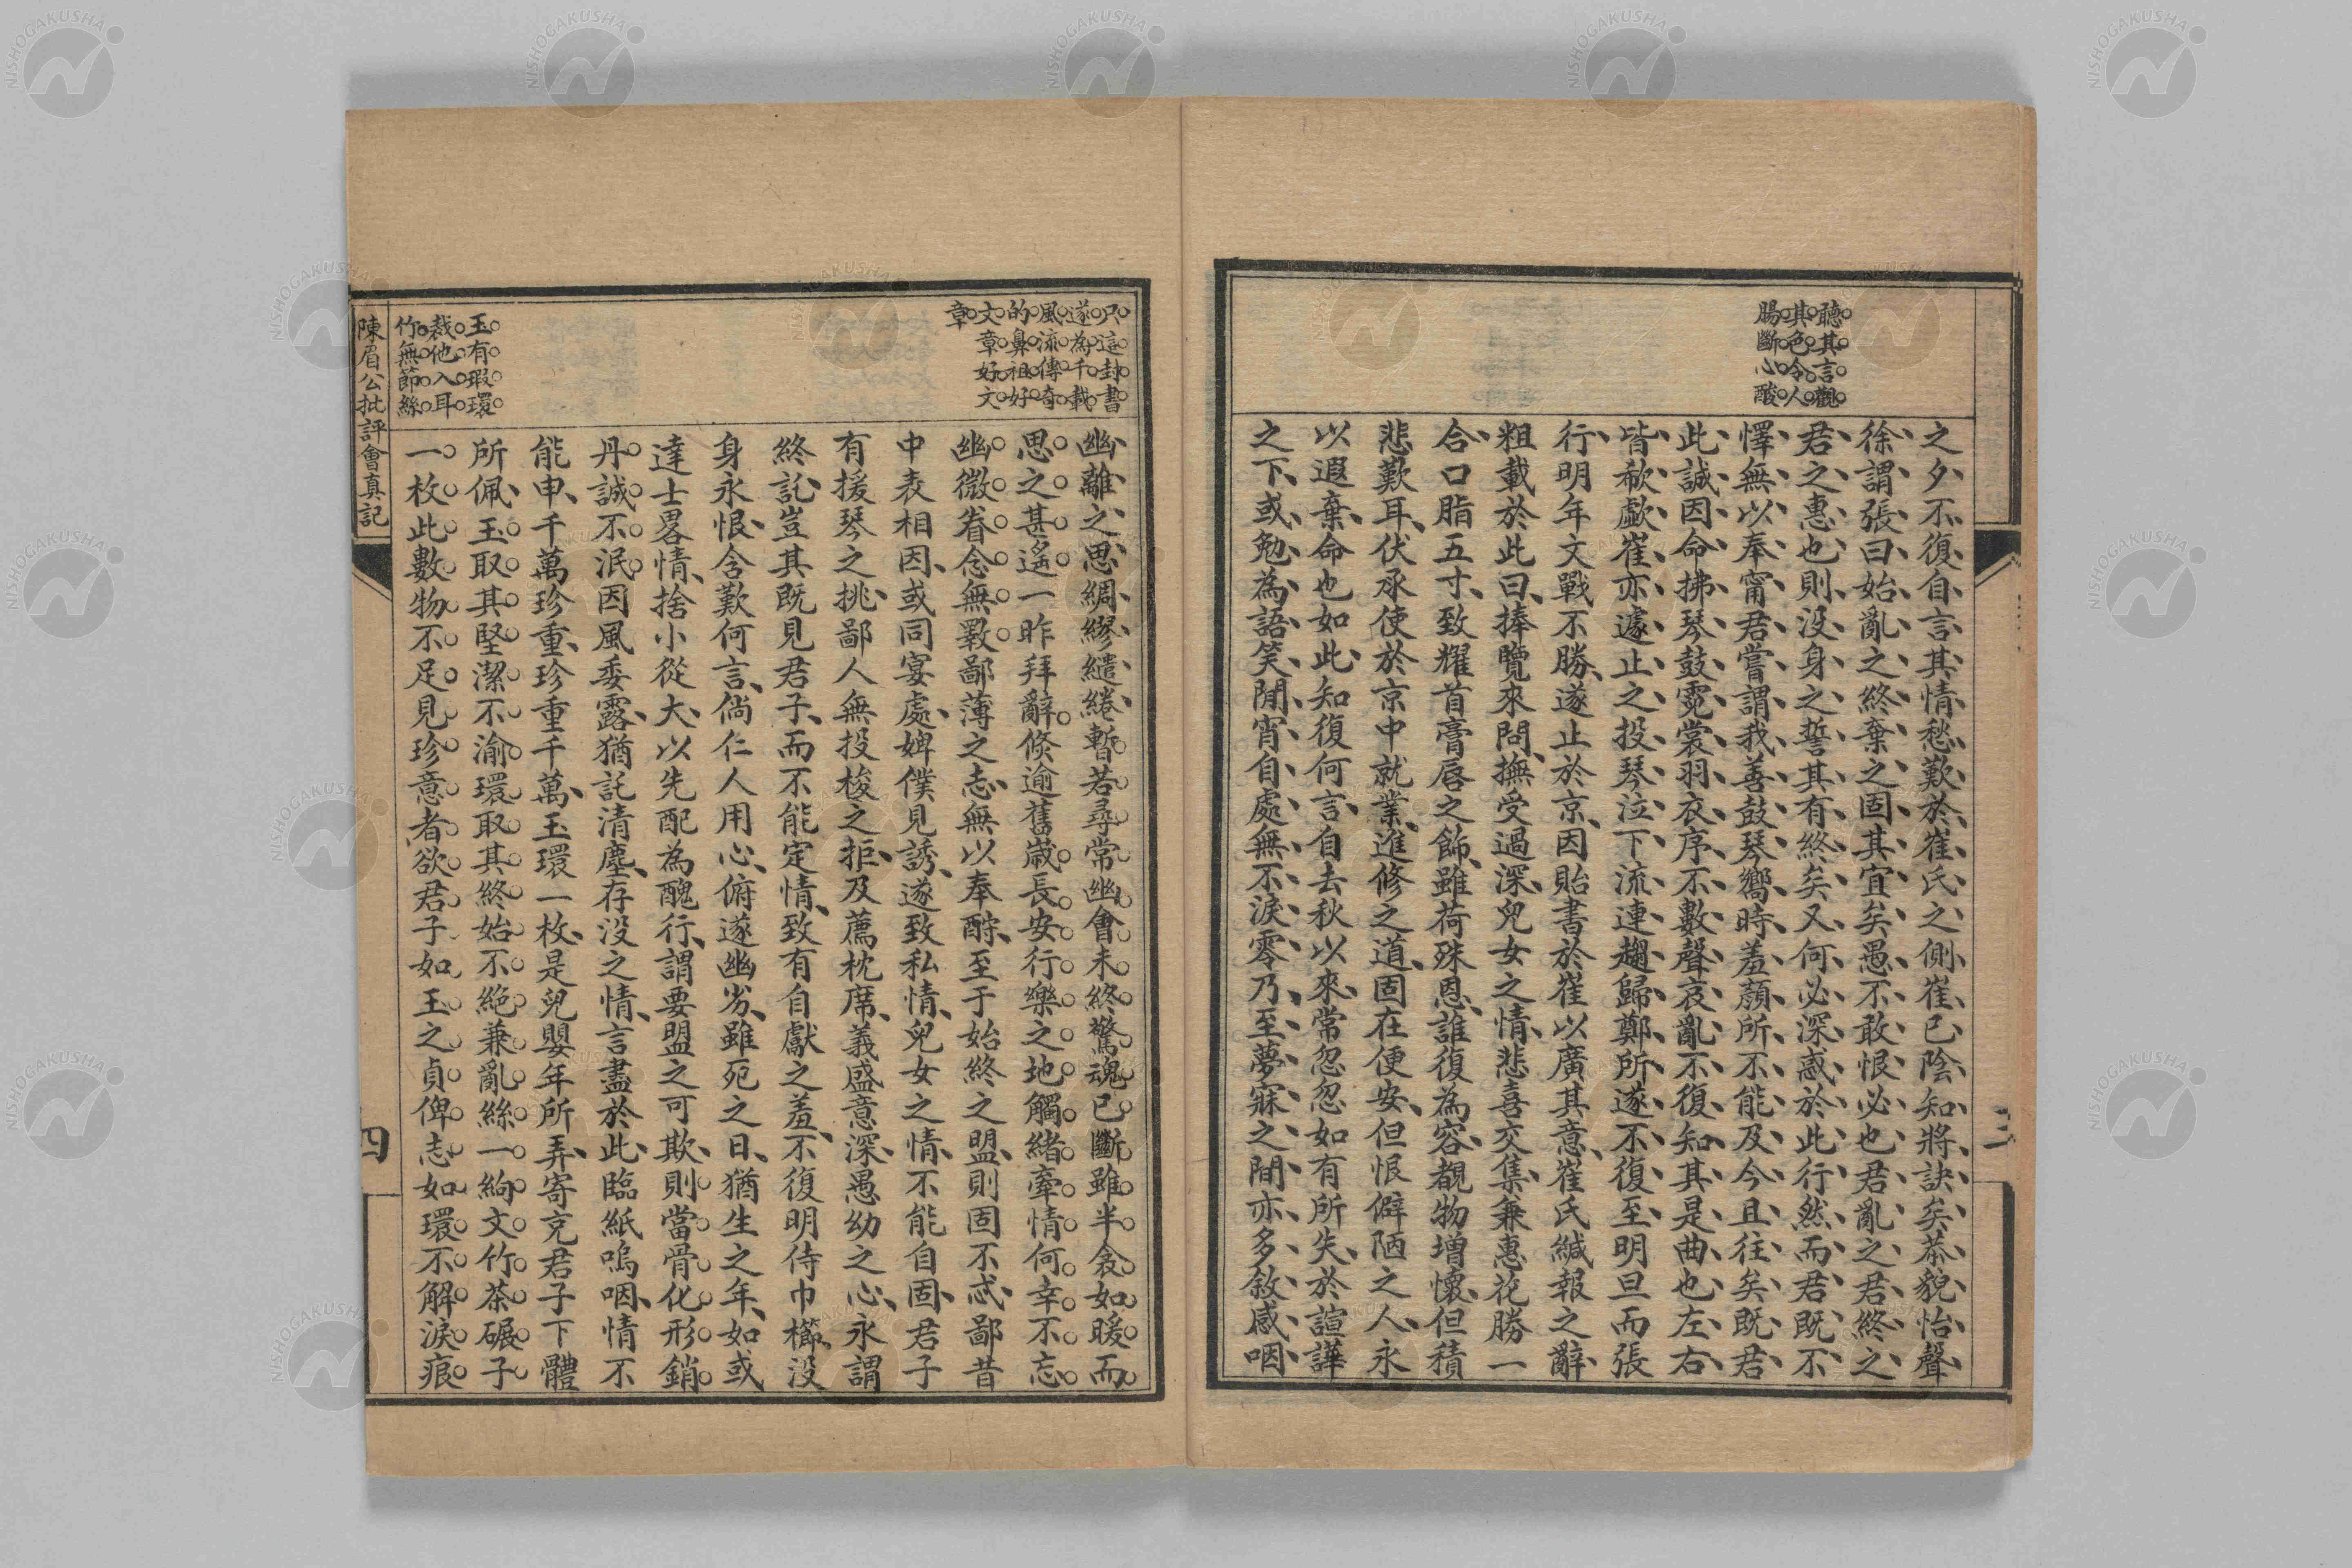 聽其言觀
其色令人
腸斷心酸
之夕不復自言其情愁歎於崔氏之側崔已陰知將訣矣恭貌怡聲
徐謂張曰始亂之終棄之固其宜矣愚不敢恨必也君亂之君終之
君之惠也則没身之誓其有終矣又何必深惑於此行然而君既不
懌無以奉甯君嘗謂我善鼓琴嚮時羞顏所不能及今且往矣既君
此誠因命拂琴鼓霓裳羽衣序不數聲哀亂不復知其是曲也左右
皆欷歔崔亦遽止之投琴泣下流連趨歸鄭所遂不復至明旦而張
行明年文戰不勝遂止於京因貽書於崔以廣其意崔氏緘報之辭
粗載於此曰捧覽來問撫受過深兒女之情悲喜交集兼惠花勝一
合口脂五寸致耀首膏唇之飾雖荷殊恩誰復為容覩物增懷但積
悲歎耳伏承使於京中就業進修之道固在便安但恨僻陋之人永
以遐棄命也如此知復何言自去秋以來常忽忽如有所失於諠譁
之下或勉為語笑閒宵自處無不淚零乃至夢寐之間亦多敘感咽
三
只這封書
遂為千載
風流傳奇
的鼻祖好
文章好文
章
幽離之思綢繆繾綣暫若尋常幽會未終驚魂已斷雖半衾如暖而
思之甚遙一昨拜辭倏逾舊歲長安行樂之地觸緒牽情何幸不忘
幽微眷念無斁鄙薄之志無以奉酧至于始終之盟則固不忒鄙昔
中表相因或同宴處婢僕見誘遂致私情兒女之情不能自固君子
有援琴之挑鄙人無投梭之拒及薦枕席義盛意深愚幼之心永謂
終託豈其既見君子而不能定情致有自獻之羞不復明侍巾櫛没
身永恨含歎何言倘仁人用心俯遂幽劣雖死之日猶生之年如或
達士畧情捨小從大以先配為醜行謂要盟之可欺則當骨化形銷
丹誠不泯因風委露猶託清塵存没之情言盡於此臨紙嗚咽情不
能申千萬珍重珍重千萬玉環一枚是兒嬰年所弄寄充君子下體
所佩玉取其堅潔不渝環取其終始不絶兼亂絲一絇文竹茶碾子
一枚此數物不足見珍意者欲君子如玉之貞俾志如環不解淚痕
玉有瑕環
裁他入耳
竹無節絲
陳眉公批評會真記
四
NISHOGAKUSHA